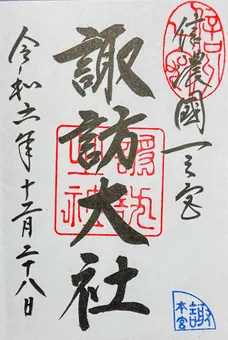 信濃國一之宮
諏訪大社
令和六年十二月二十八日
諏訪大社
諏
本宮